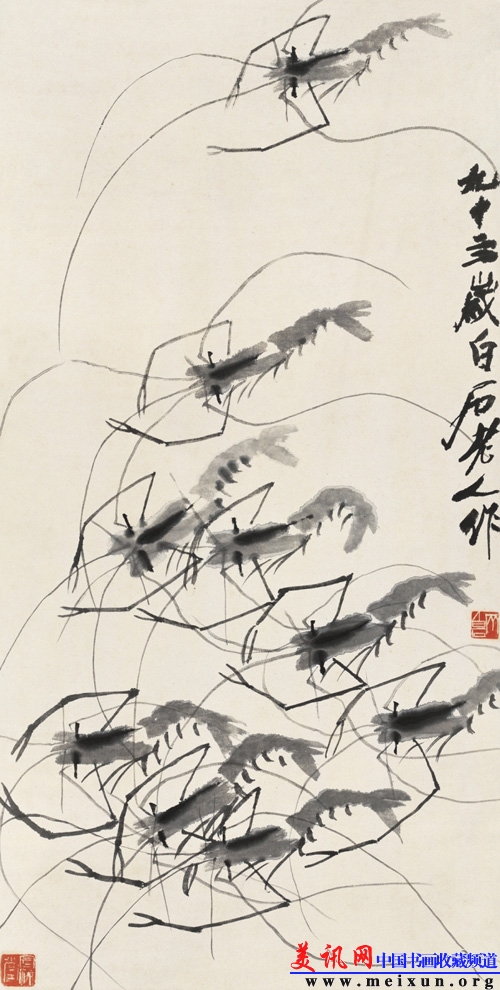 九十三岁白石老人作
美讯网 中国书画收藏频道
www.meixun.org